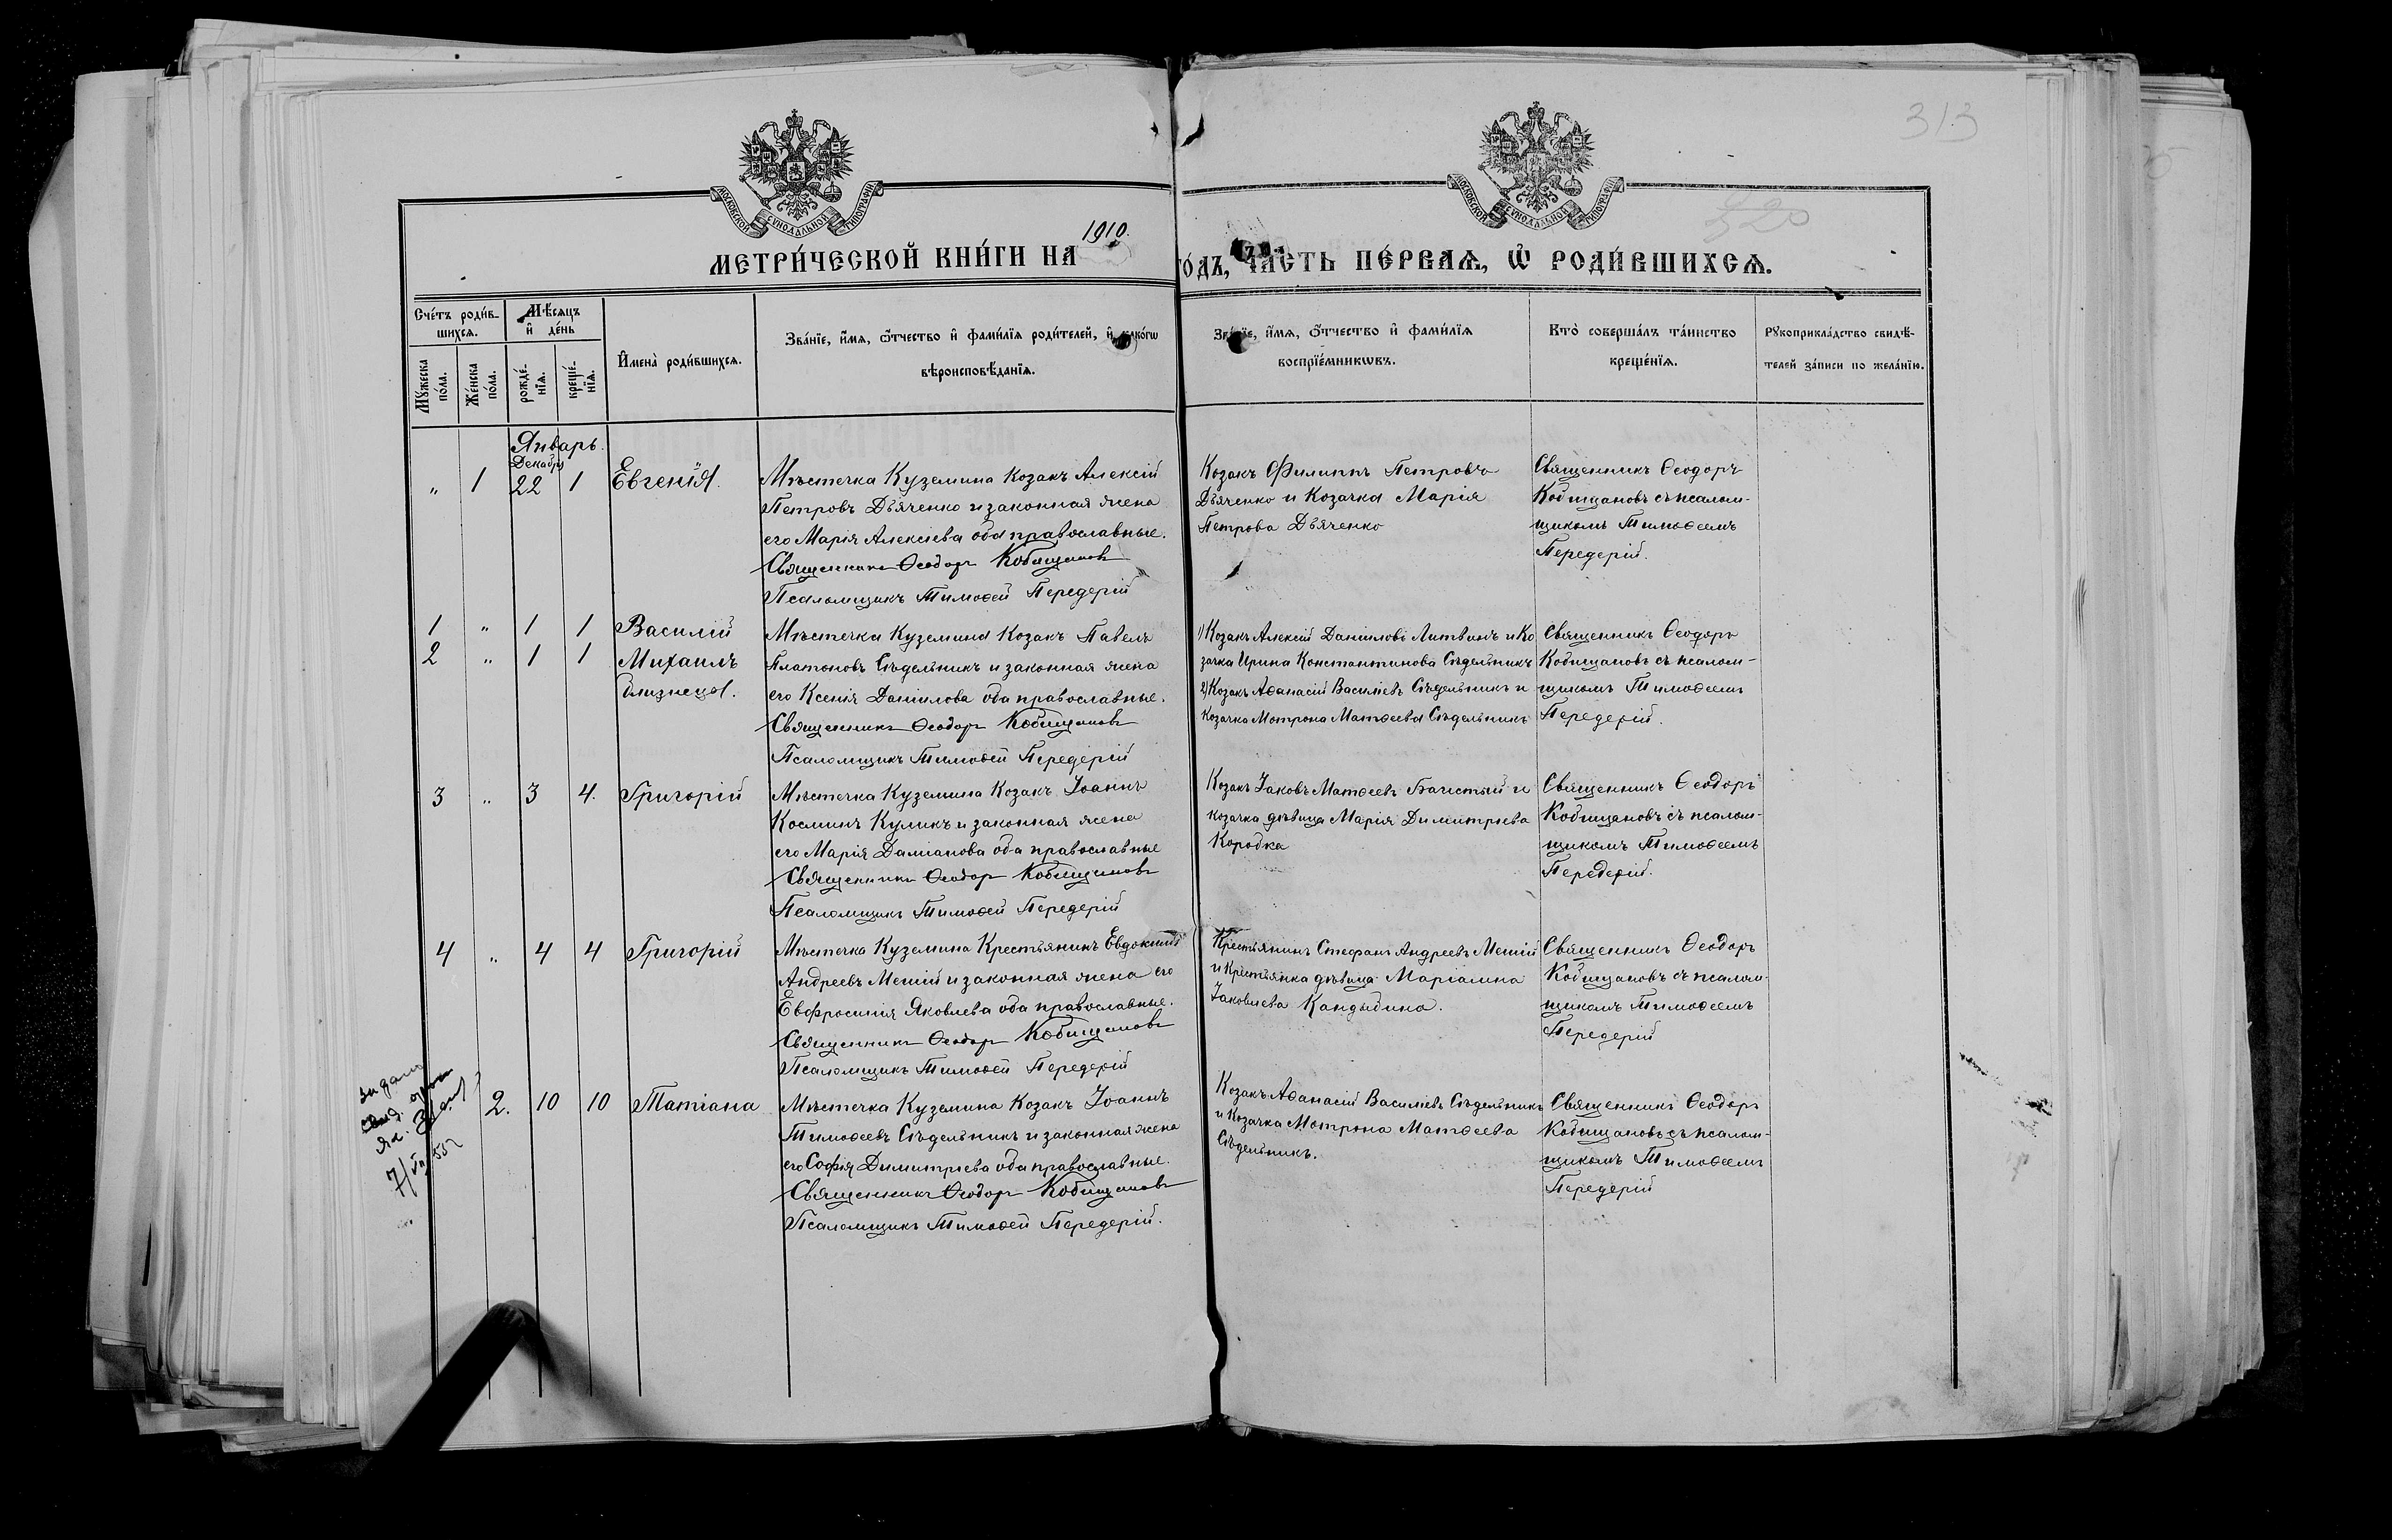 313
320
МОСКОВСКОЙ СѴНОДАЛЬНОЙ ТИПОГРАФІИ
МОСКОВСКОЙ СѴНОДАЛЬНОЙ ТИПОГРАФІИ
МЕТРИ́ЧЕСКОЙ КНИ́ГИ НА 1910. ГО́ДЪ, ЧА́СТЬ ПЕ́РВАѦ, Ѡ҆ РОДИ́ВШИХСѦ.
Сче́тъ роди́в-
шихсѧ.
Мꙋ́жеска по́ла.
Же́нска по́ла.
Мѣ́сѧцъ
и҆ де́нь
рожде́-нїѧ.
креще́-нїѧ.
И҆мена̀ роди́вшихсѧ.
Зва́нїе, и҆́мѧ, ѻ҆́тчество и҆ фами́лїѧ роди́телей, и҆ како́гѡ
вѣроисповѣ́данїѧ.
Зва́нїе, и҆́мѧ, ѻ҆́тчество и҆ фами́лїѧ
воспрїе́мникѡвъ.
Кто̀ соверша́лъ та́инство
креще́нїѧ.
Рꙋкоприкла́дство свидѣ́-
телей за́писи по жела́нїю.
Январь.
Декабря
" 1 22 1 Евгенія.
Мѣстечка Куземина Козакъ Алексій
Петровъ Дьяченко и законная жена
его Марія Алексіева оба православные.
Священникъ Ѳеодоръ Кобищановъ
Псаломщикъ Тимоѳей Передерій
Козакъ Филиппъ Петровъ
Дьяченко и Козачка Марія
Петрова Дьяченко
Священникъ Ѳеодоръ
Кобищановъ съ псалом-
щикомъ Тимоѳеемъ
Передерій.
1 " 1 1 Василій
2 " 1 1 Михаилъ
близнецы.
Мѣстечка Куземина Козакъ Павелъ
Платоновъ Съдельникъ и законная жена
его Ксенія Даніилова оба православные.
Священникъ Ѳеодоръ Кобищановъ
Псаломщикъ Тимоѳей Передерій
1) Козакъ Алексій Данииловъ Литвинъ и Ко
зачка Ирина Константинова Съдельникъ
2) Козакъ Аѳанасій Василіевъ Съдельникъ и
Козачка Мотрона Матѳеева Съдельникъ
Священникъ Ѳеодоръ
Кобищановъ съ псалом-
щикомъ Тимоѳеемъ
Передерій.
3 " 3 4. Григорій
Мѣстечка Куземина Козакъ Іоаннъ
Косминъ Куликъ и законная жена
его Марія Даміанова оба православные
Священникъ Ѳеодоръ Кобищановъ
Псаломщикъ Тимоѳей Передерій
Козакъ Іаковъ Матѳеевъ Бачистый и
козачка дѣвица Марія Димитріева
Коробка
Священникъ Ѳеодоръ
Кобищановъ съ псалом-
щикомъ Тимоѳеемъ
Передерій.
4 " 4 4 Григорій
Мѣстечка Куземина Крестьянинъ Евдокимъ
Андреевъ Меший и законная жена его
Евфросинія Яковлева оба православные.
Священникъ Ѳеодоръ Кобищановъ
Псаломщикъ Тимоѳей Передерій
Крестьянинъ Стефанъ Андреевъ Меший
и Крестьянка дѣвица Маріамна
Іаковлева Кандыбина.
Священникъ Ѳеодоръ
Кобищановъ съ псалом-
щикомъ Тимоѳеемъ
Передерій
2. 10 10 Татіана
Мѣстечка Куземина Козакъ Іоаннъ
Тимоѳеевъ Съдельникъ и законная жена
его Софія Димитріева оба православные.
Священникъ Ѳеодоръ Кобищановъ
Псаломщикъ Тимоѳей Передерій.
Козакъ Аѳанасій Василіевъ Съдельникъ
и Козачка Мотрона Матѳеева
Съдельникъ.
Священникъ Ѳеодоръ
Кобищановъ съ псалом-
щикомъ Тимоѳеемъ
Передерій